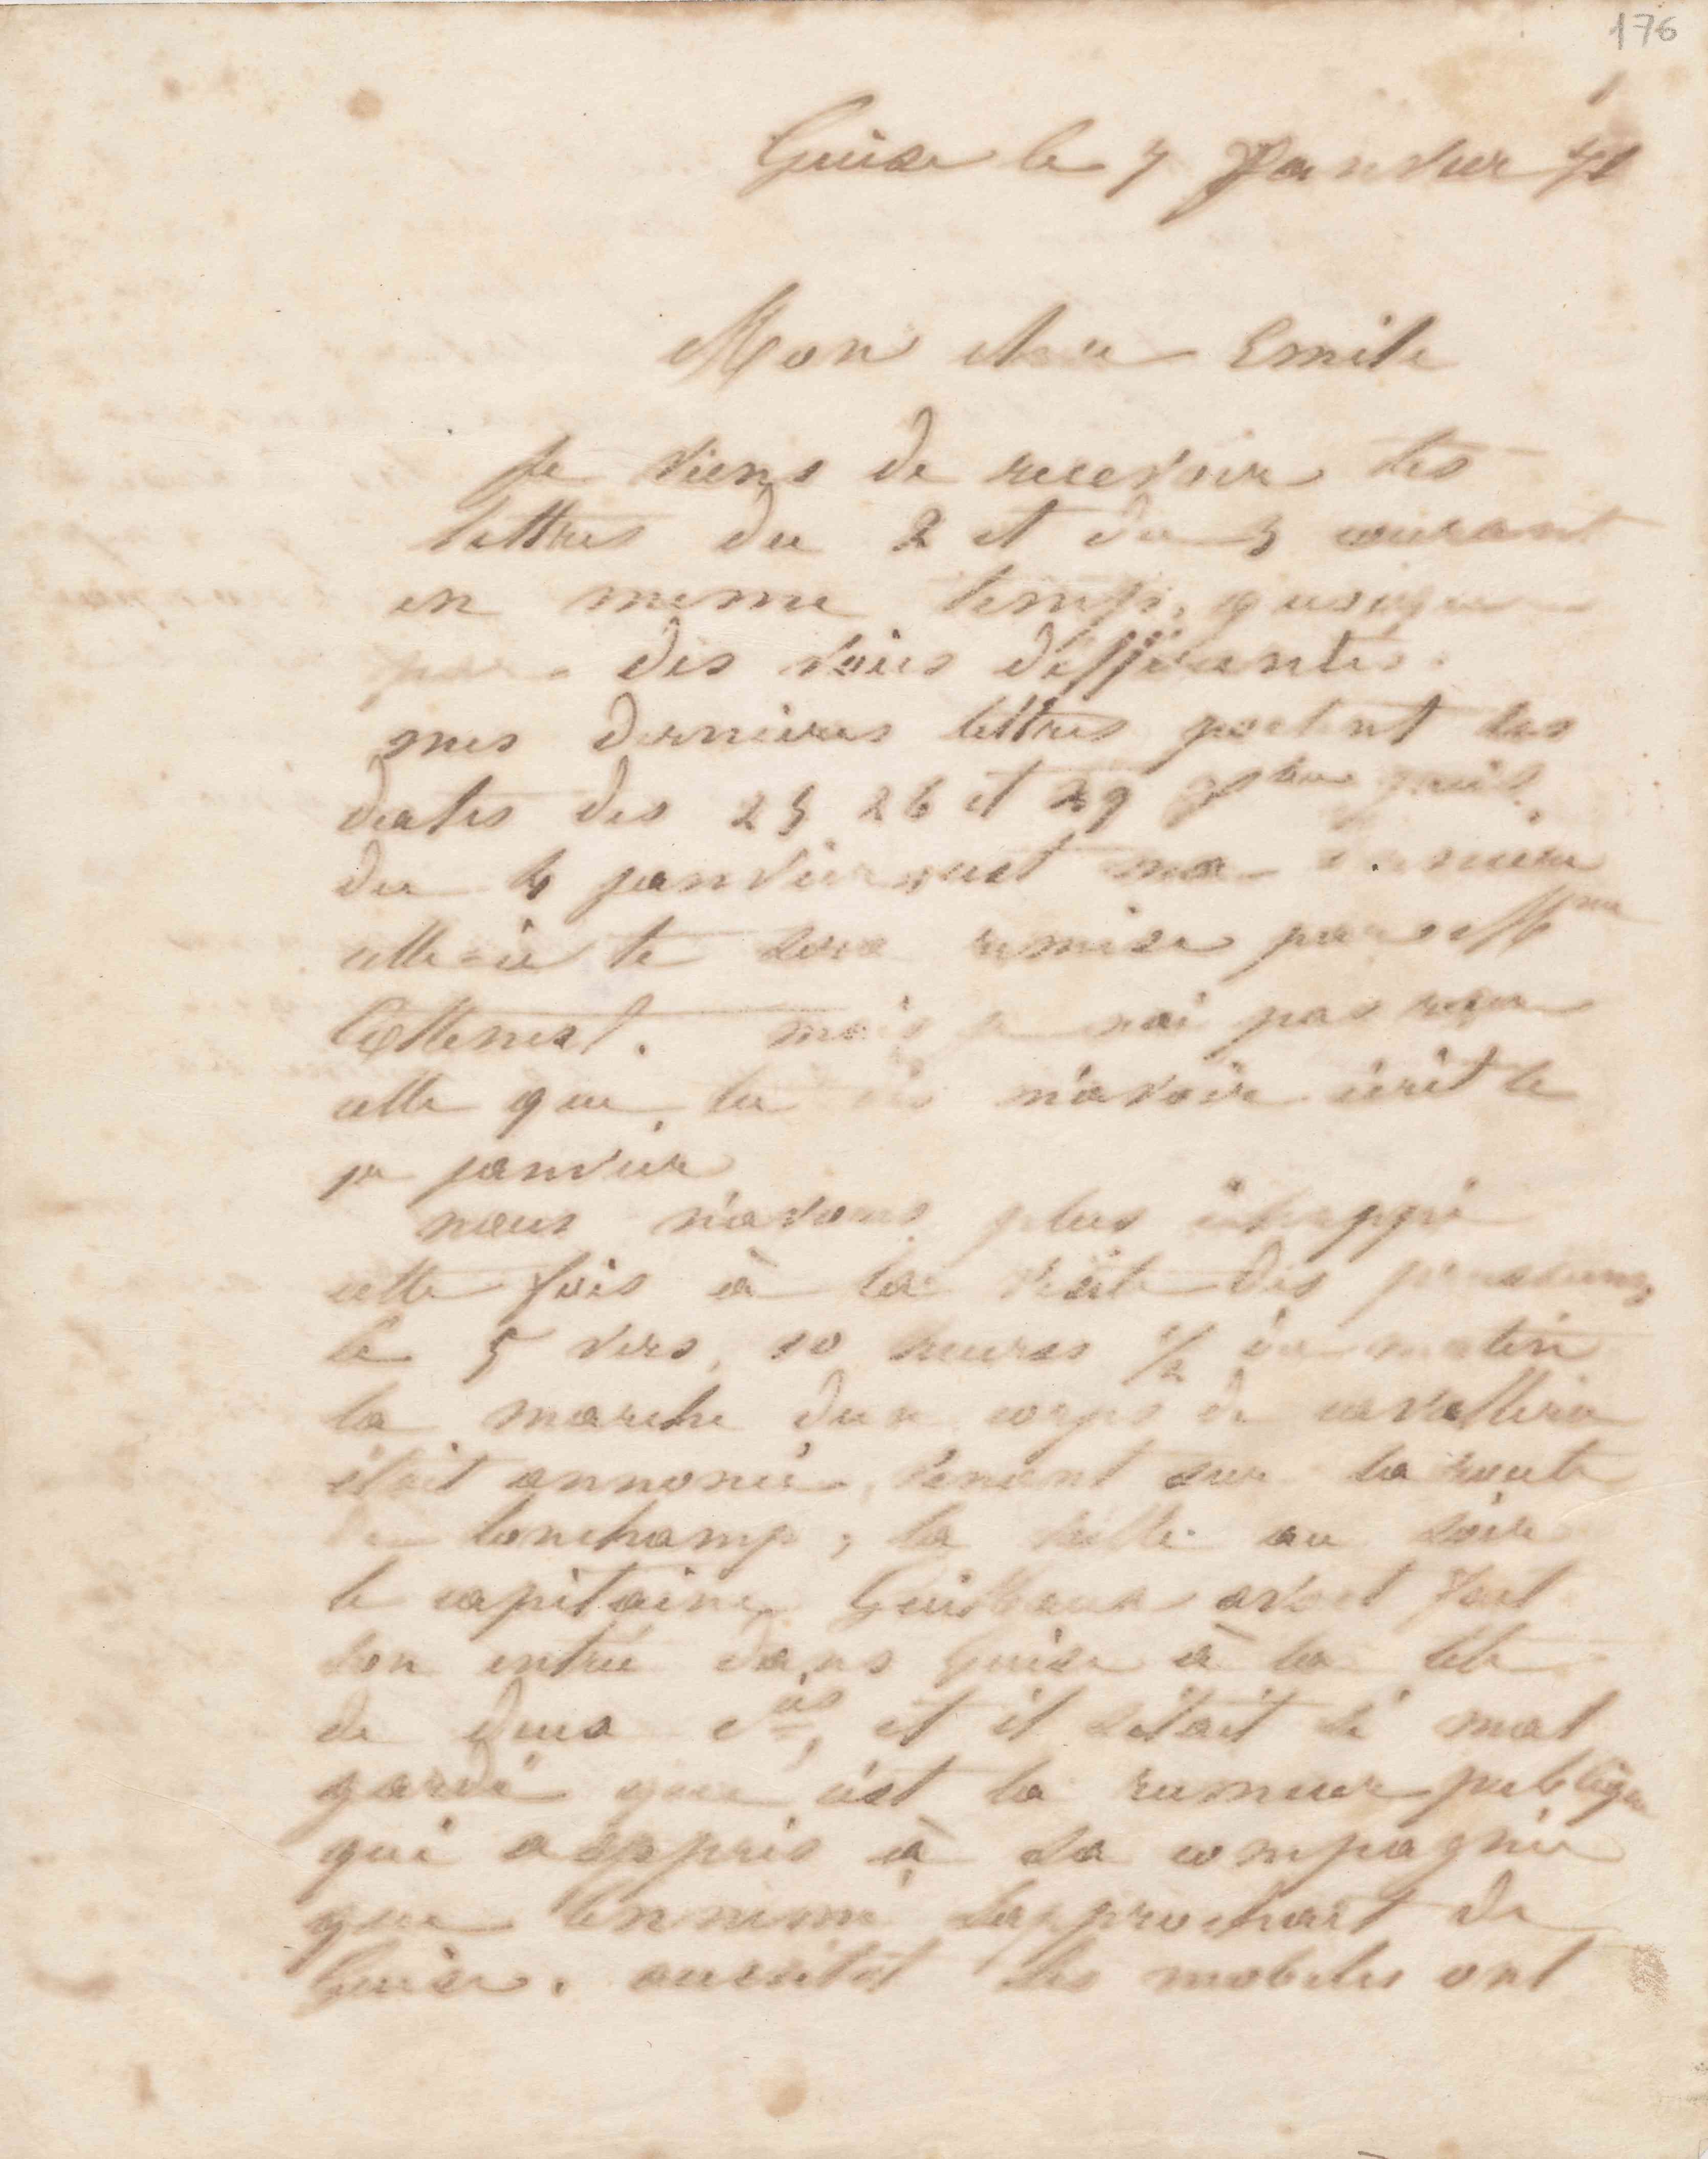 176
Guise le 7 Janvier 71
Mon cher Emile
Je viens de recevoir tes
lettres du 2 et du 5 courant
en meme temps, quoique
par des voies différentes.
mes dernieres lettres portent les
dates des 25 26 et 29 Xbre puis
du 4 janvier c'est ma derniere
celle-ci te sera remise par Mme
Cottenest. mais je n'ai pas reçu
celle que tu dis m'avoir écrit le
1er janvier
nous n'avons plus échappé
cette fois à la visite des prussiens,
le 5 vers 10 heures 1/2 du matin
la marche d'un corps de cavallerie
était annoncé, venant sur la route
de Lonchamp, la veille au soir
le capitaine avait fait
son entrée dans Guise à la tête
de deux Cies, et il s'était si mal
gardé que c'est la rumeur publique
qui a appris à sa compagnie
que l'ennemi s'approchait de
Guise. aussitot les mobiles ont